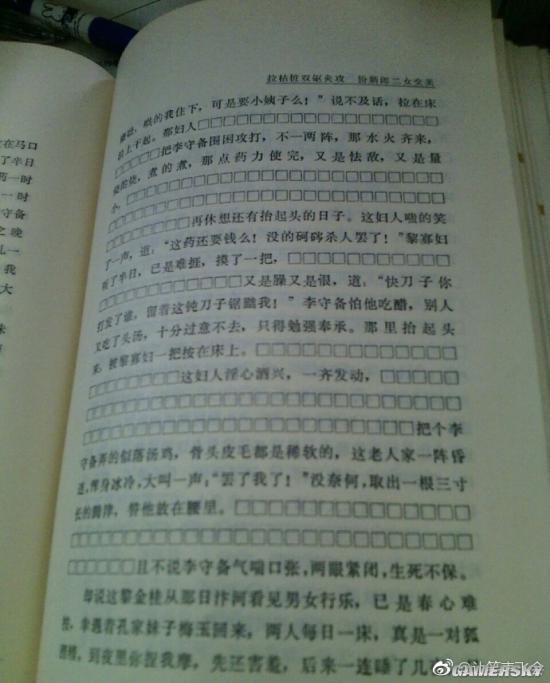 在马口
了半日
药一时
一时
守备
之晚
孔一
我
大
拉枯桩双锯夹攻 扮新郎二女交美
的我住下,可是要小姨子么!”说不及话,拉在床
上干起。那妇人□□□□□□□□□□□□□□□□□
□□□□□把李守备围困攻打,不一两阵,那水火齐来,
烧的烧,煮的煮,那点药力使完,又是怯敌,又是量
小。□□□□□□□□□□□□□□□□□□□□□
□□□□□□再休想还有抬起头的日子。这妇人嗤的笑
了一声,道:“这药还要钱么!没的砢硶杀人罢了!”黎寡妇
听了半日,已是难捱,摸了一把,□□□□□□□□□
□□□□□□□□又是臊又是恨,道:“快刀子你
打发了谁,留着这钝刀子锯我!”李守备怕他吃醋,别人
又吃了头汤,十分过意不去,只得勉强奉承。那里抬起头
来,被黎寡妇一把按在床上。□□□□□□□□□□□
□□□□□□这妇人淫心酒兴,一齐发动,□□□□□
□□□□□□□□□□□□□□□□□□□□□□
□□□□□□□□□□□□□□□□□□□把个李
守备弄的似落汤鸡,骨头皮毛都是稀软的,这老人家一阵昏
迷,浑身冰冷,大叫一声:“罢了我了!”没奈何,取出一根三寸
长的,替他放在腰里。□□□□□□□□□□□□
□□□□□□且不说李守备气喘口张,两眼紧闭,生死不保。
却说这黎金桂从那日汴河看见男女行乐,已是春心难
,幸遇着孔家妹子梅玉回来,两人每日一床,真是一对狐
,到夜里你捏我摩,先还害羞,后来一连睡了几
GAMERSKY